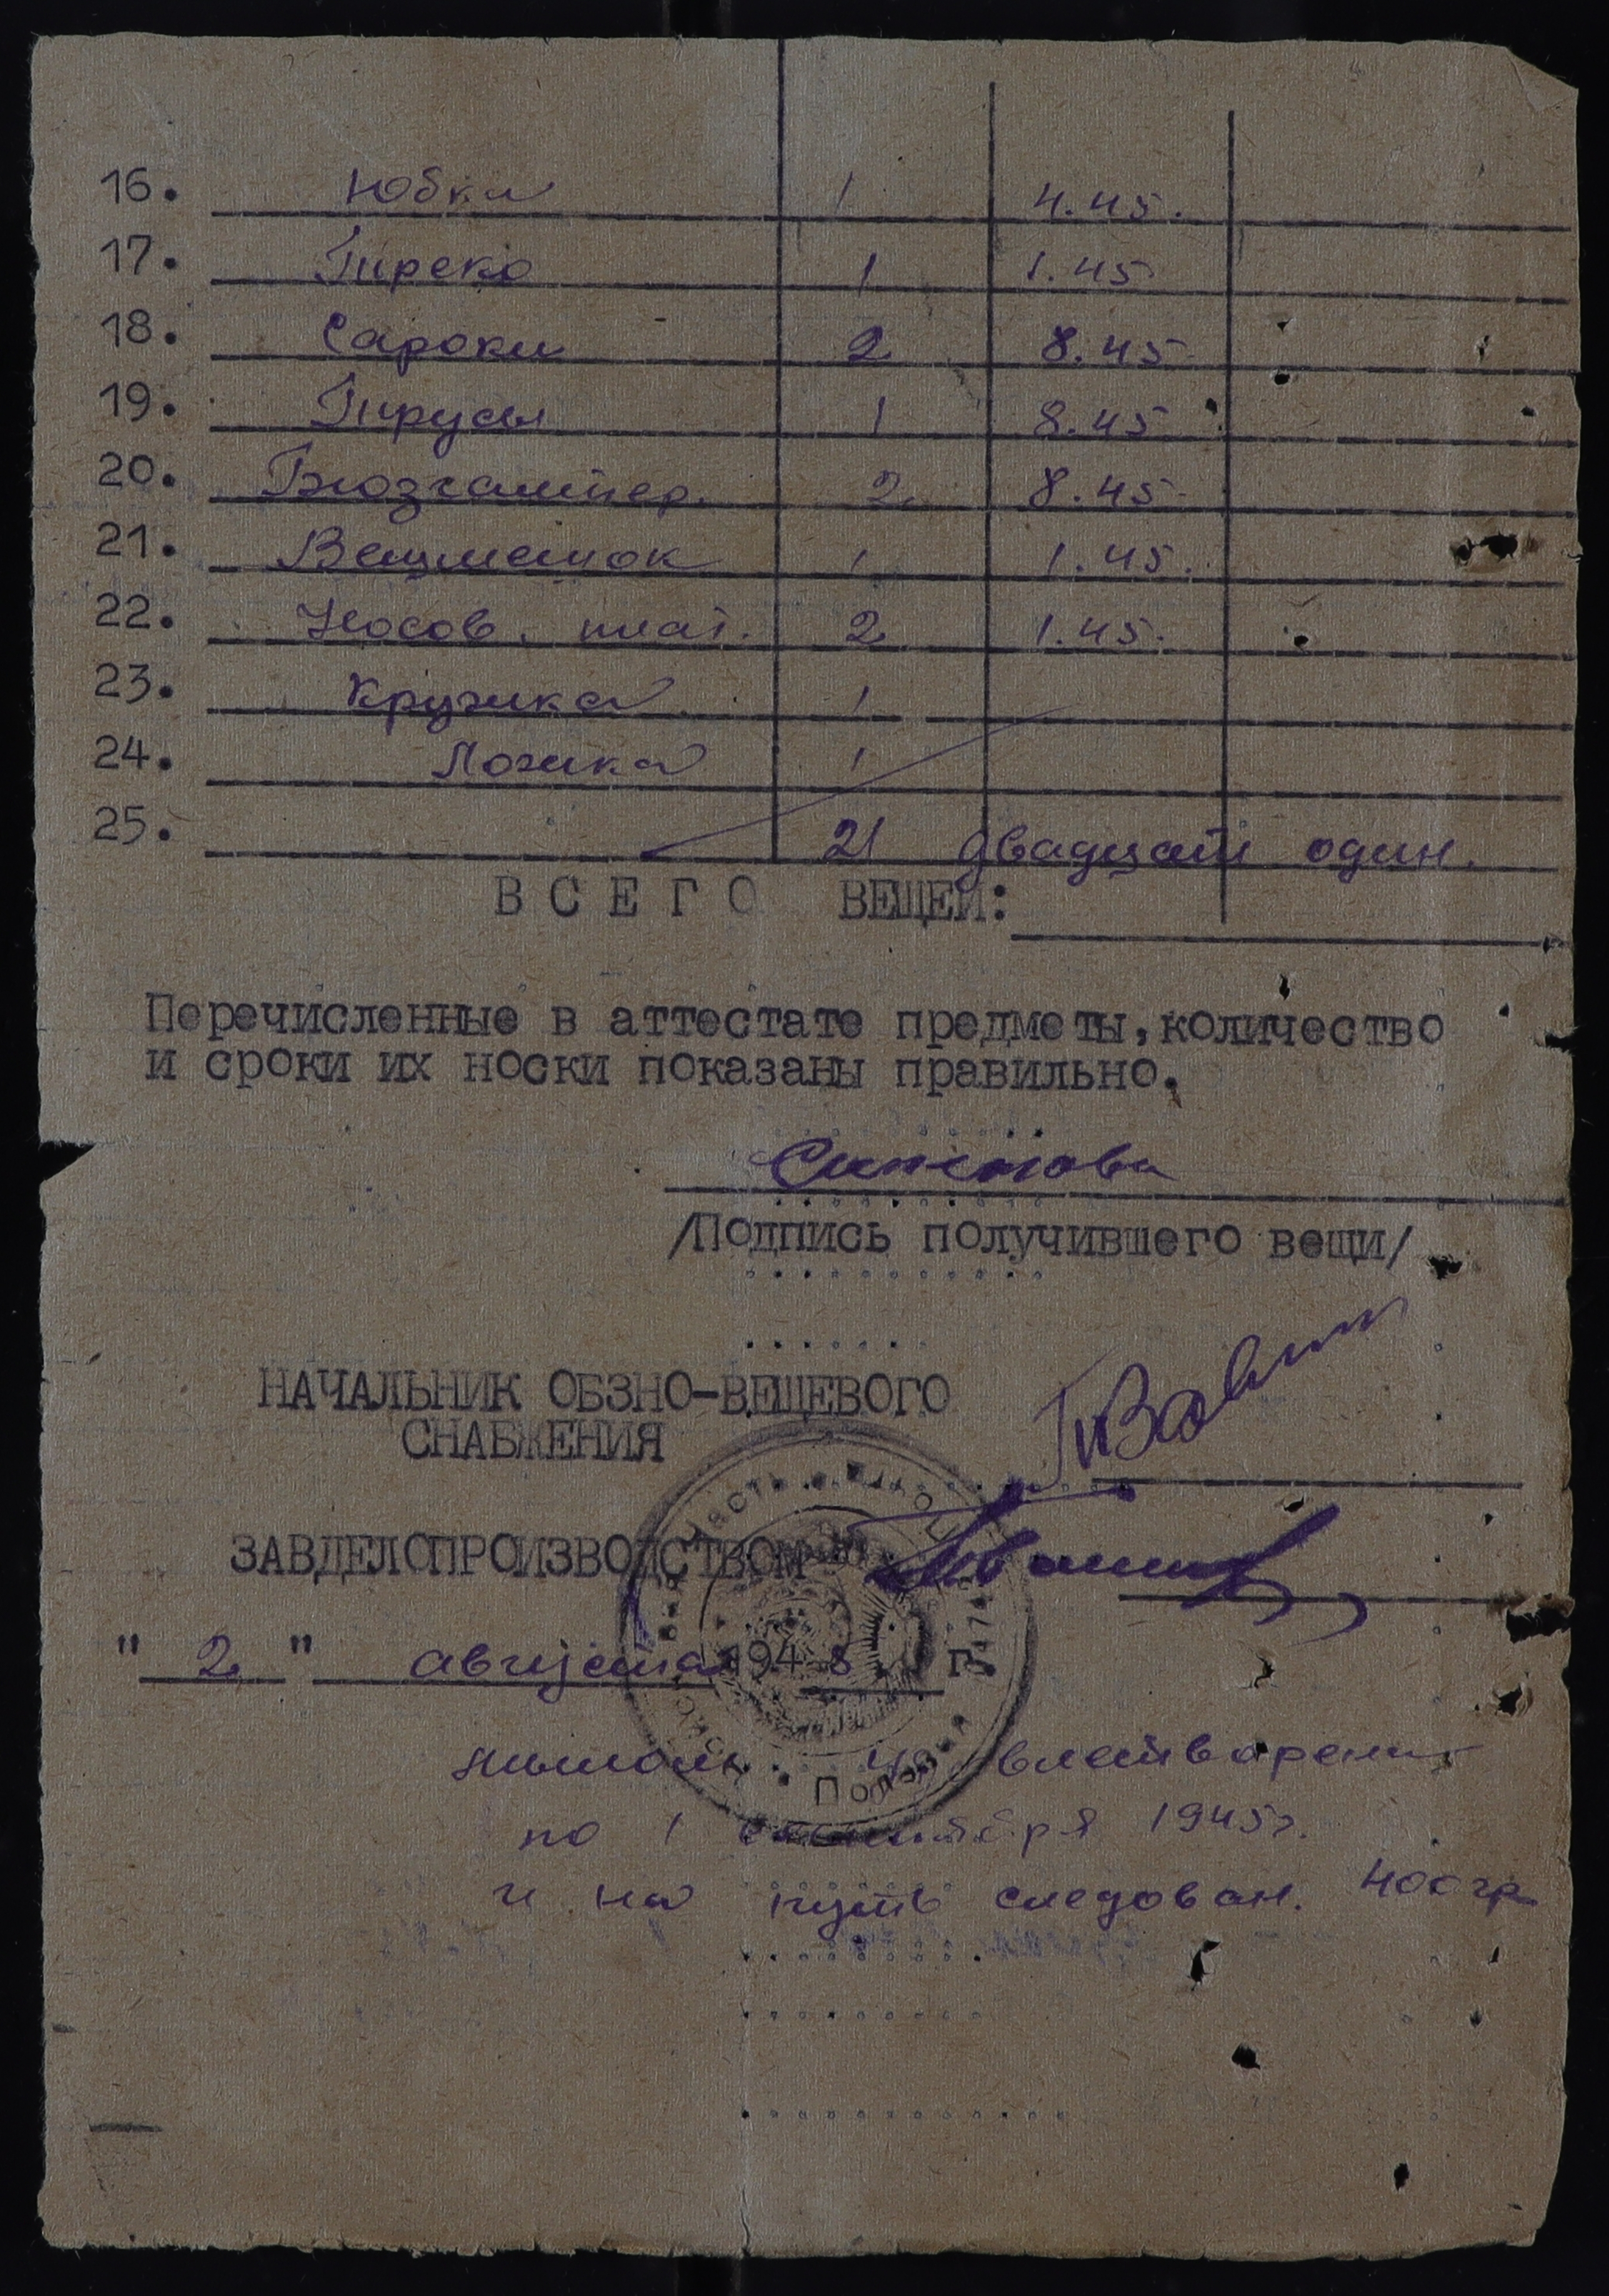 16. Юбка 1 4.45.
17. Трико 1 1.45
18. Сароки 2 8.45
19. Трусы 1 8.45
20. Бюзгалтер. 2 8.45
21. Вещмешок 1 1.45.
22. Носов. плат. 2 1.45.
23. Кружка 1
24. Ложка 1
25. 21 двадцать один.
ВСЕГО ВЕЩЕЙ:
Перечисленные в аттестате предметы, количество
и сроки их носки показаны правильно.
/Подпись получившего вещи/
НАЧАЛЬНИК ОБЗНО-ВЕЩЕВОГО
СНАБЖЕНИЯ
ЗАВДЕЛОПРОИЗВОДСТВОМ
" 2 " августа 194 г.
Полевая
по 1 1945г.
и на путь следован. 400 гр